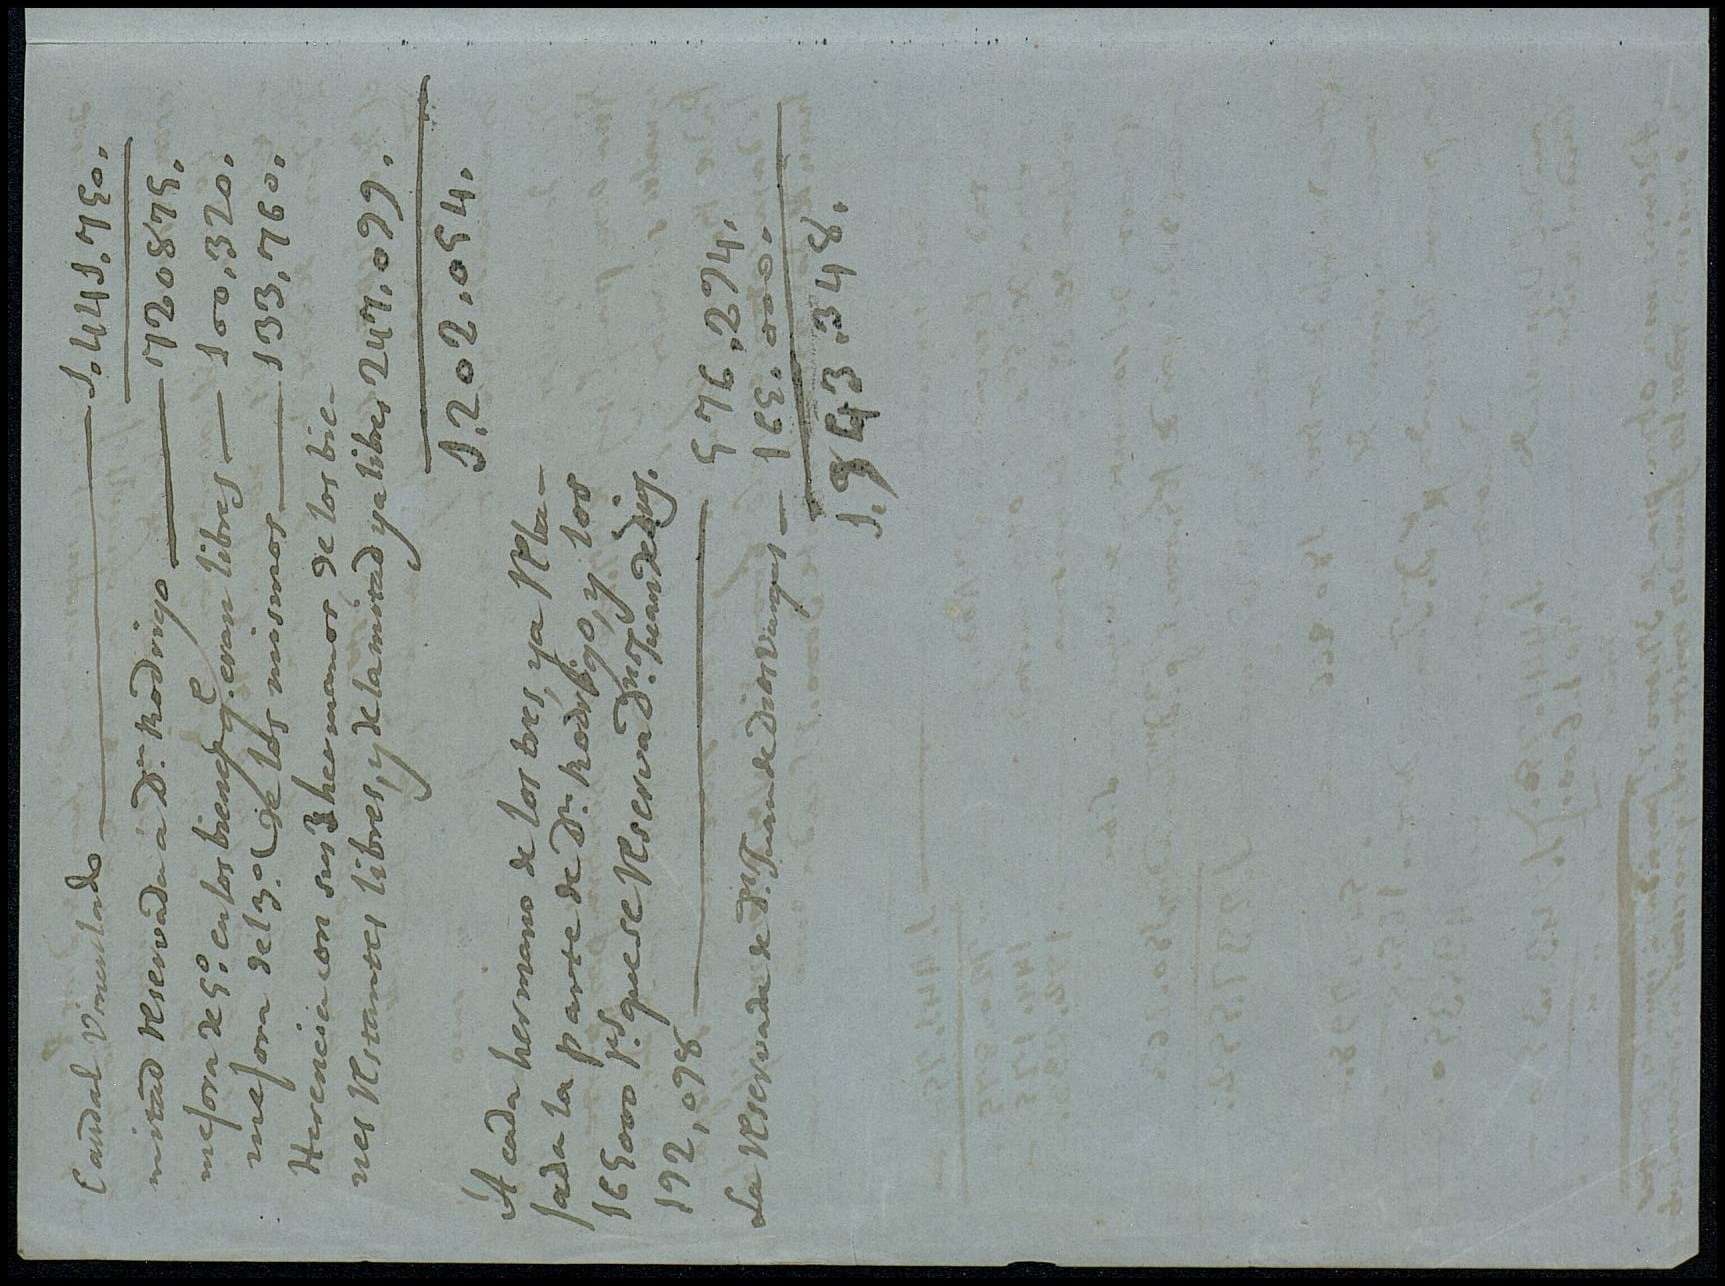 Caudal Vinculado — 1.441.750.
mitad reservada a Dn. Rodrigo — 720875.
mejora de 5.º en los bienes q.e eran libres — 100,320.
mejora del 3.º (de los mismos — 133,760.
Herencia con sus 3 hermanos de los bie-
nes restantes libres, y de la mitad ya libre 247.099.
1.202.054.
A cada hermano de los tres, ya reba-
jada la parte de Dn. Rodrigo, y los
165000 ps. que se reserva Dn. Juan de Dios.
192,098 — 576.294.
La reservada de Dn. Juan de Dios — 165.000.
1.943.348.